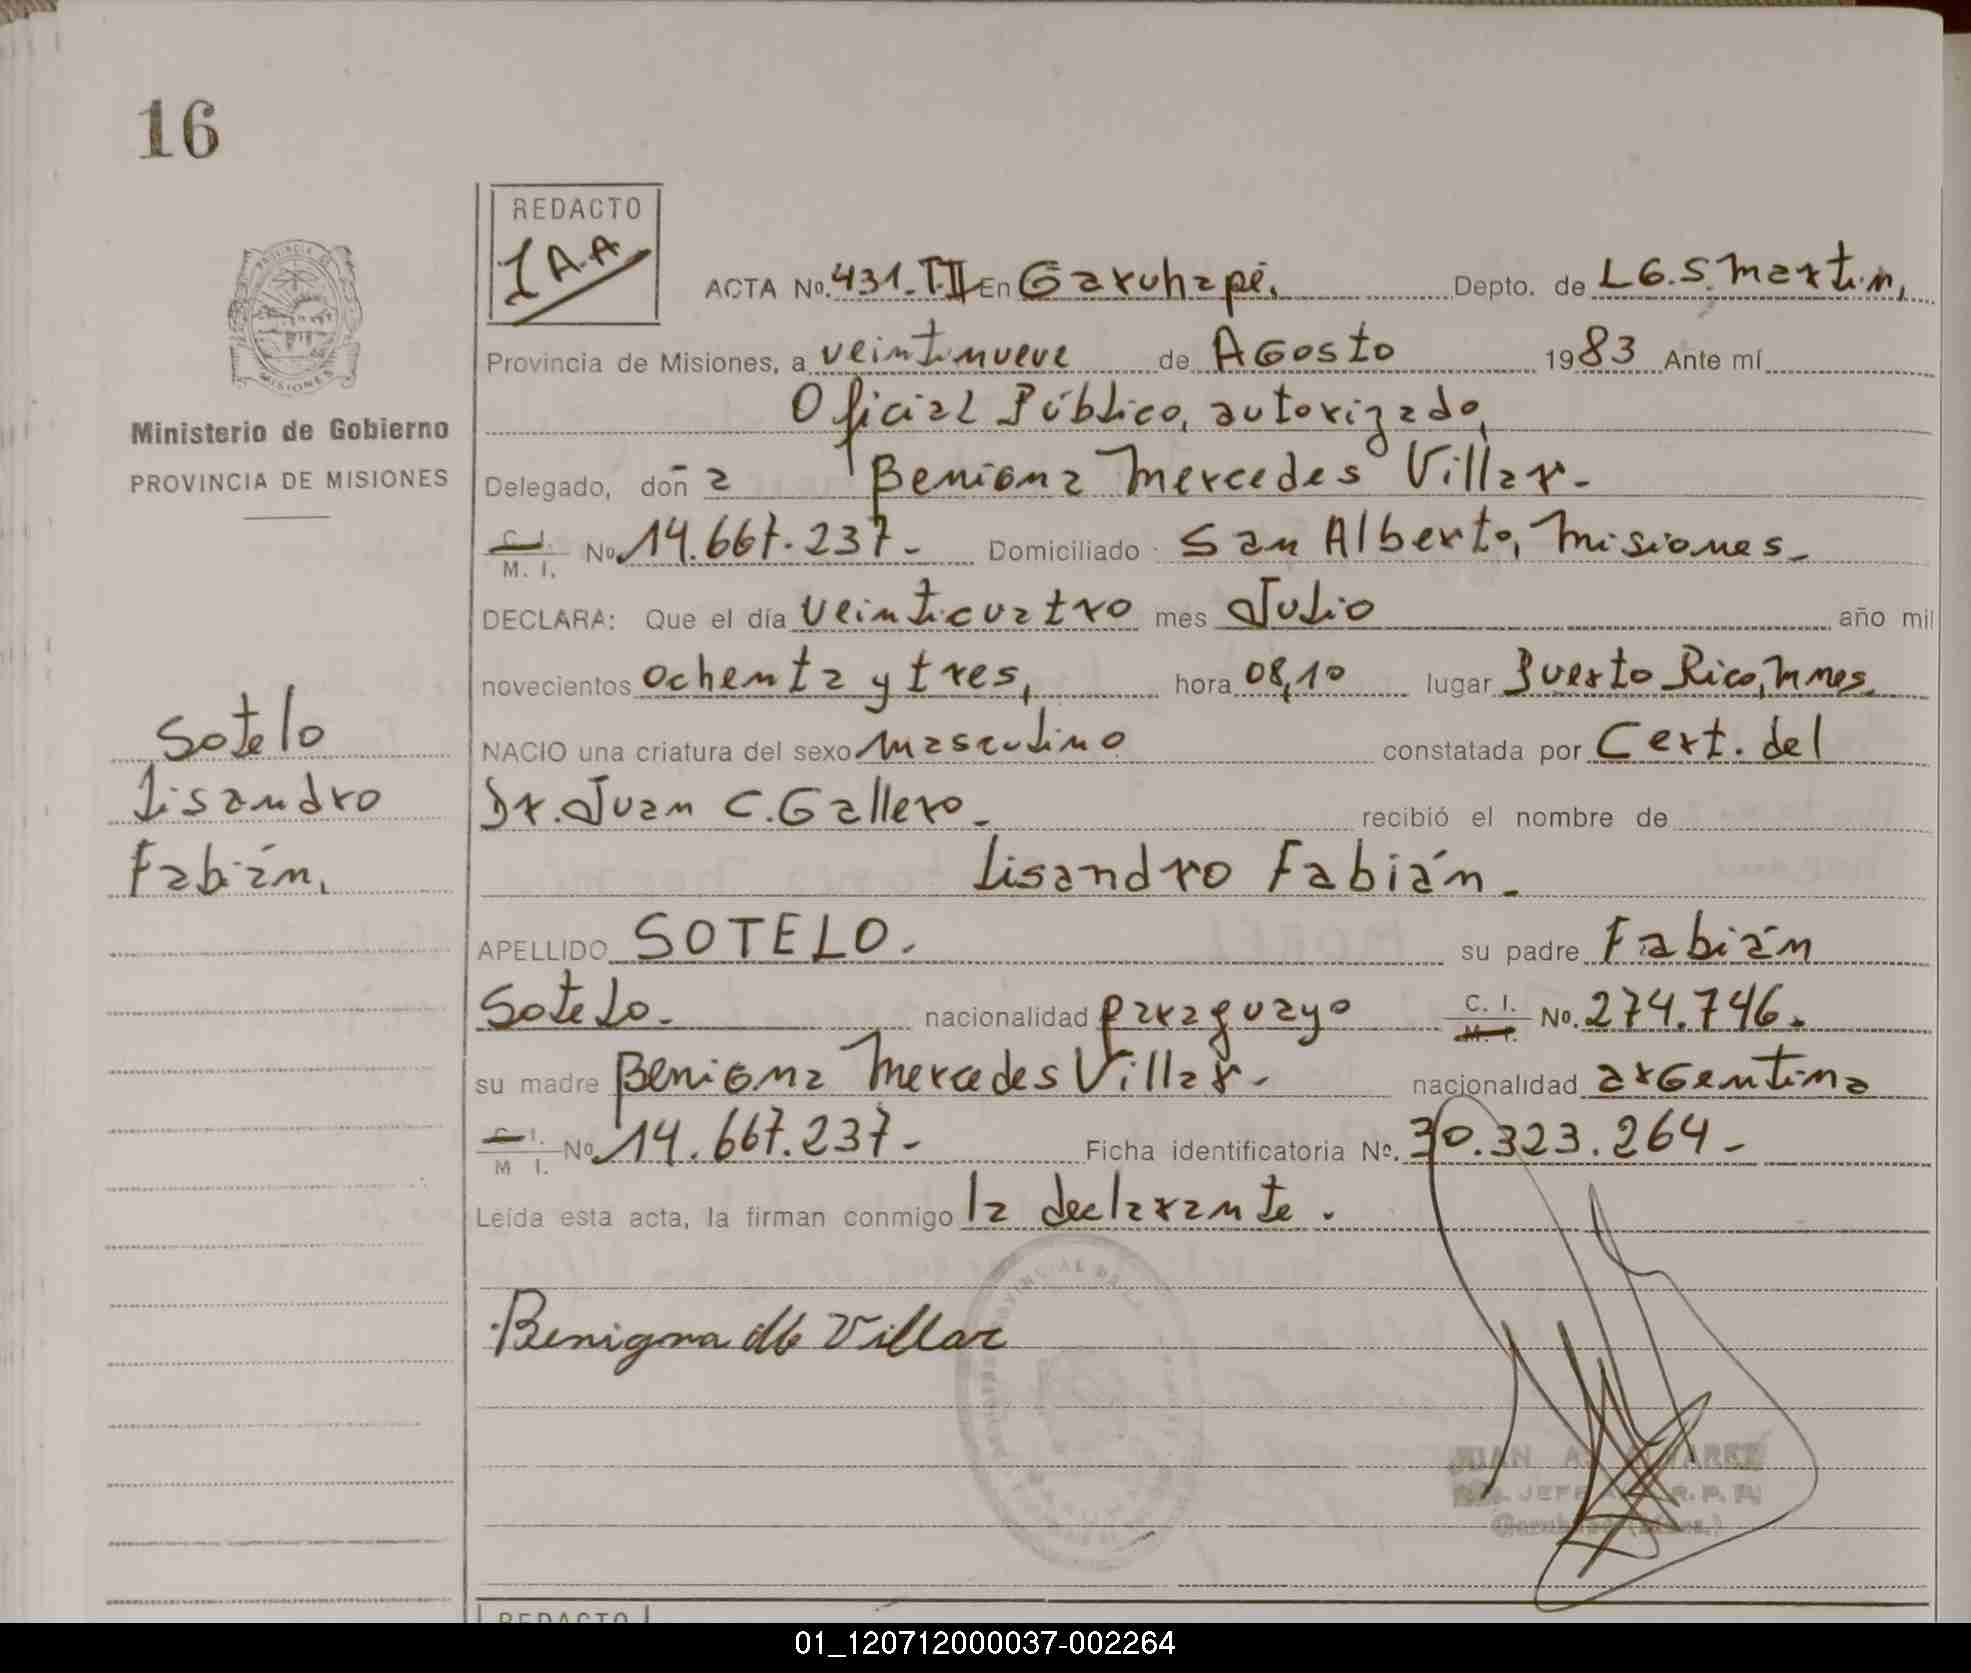 16
REDACTO
JAA
ACTA No. 431-T.II En Garuhapé. Depto. de L.G.S. Martin,
Provincia de Misiones, a veintinueve de Agosto 1983 Ante mí
Oficial Público, autorizado,
Delegado, doña Benigna Mercedes Villar.-
C. I. M. I. No. 14.667.237.- Domiciliado San Alberto, Misiones.-
DECLARA: Que el día veinticuatro mes Julio año mil
novecientos ochenta y tres, hora 08,10 lugar Puerto Rico, Mnes.
NACIO una criatura del sexo masculino constatada por Cert. del
Dr. Juan C. Gallero.- recibió el nombre de
Lisandro Fabián.-
APELLIDO SOTELO. su padre Fabián
Sotelo.- nacionalidad paraguayo C. I. M. I. No. 274.746.
su madre Benigna Mercedes Villar.- nacionalidad argentina
C. I. M I. No 14.667.237.- Ficha identificatoria No. 30.323.264-
Leída esta acta, la firman conmigo la declarante.
Benigna de Villar
Ministerio de Gobierno
PROVINCIA DE MISIONES
Sotelo
Lisandro
Fabián.
REDACTO
01_120712000037-002264